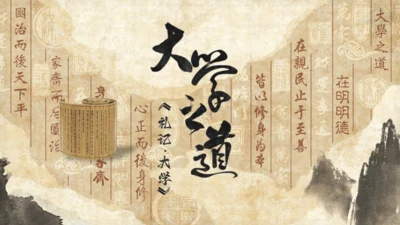 大学之道
《礼记·大学》
大學之道
在明明德
在親民止于至善
皆以修身為本
心正而後身修
身
家齊
國治而後天下平